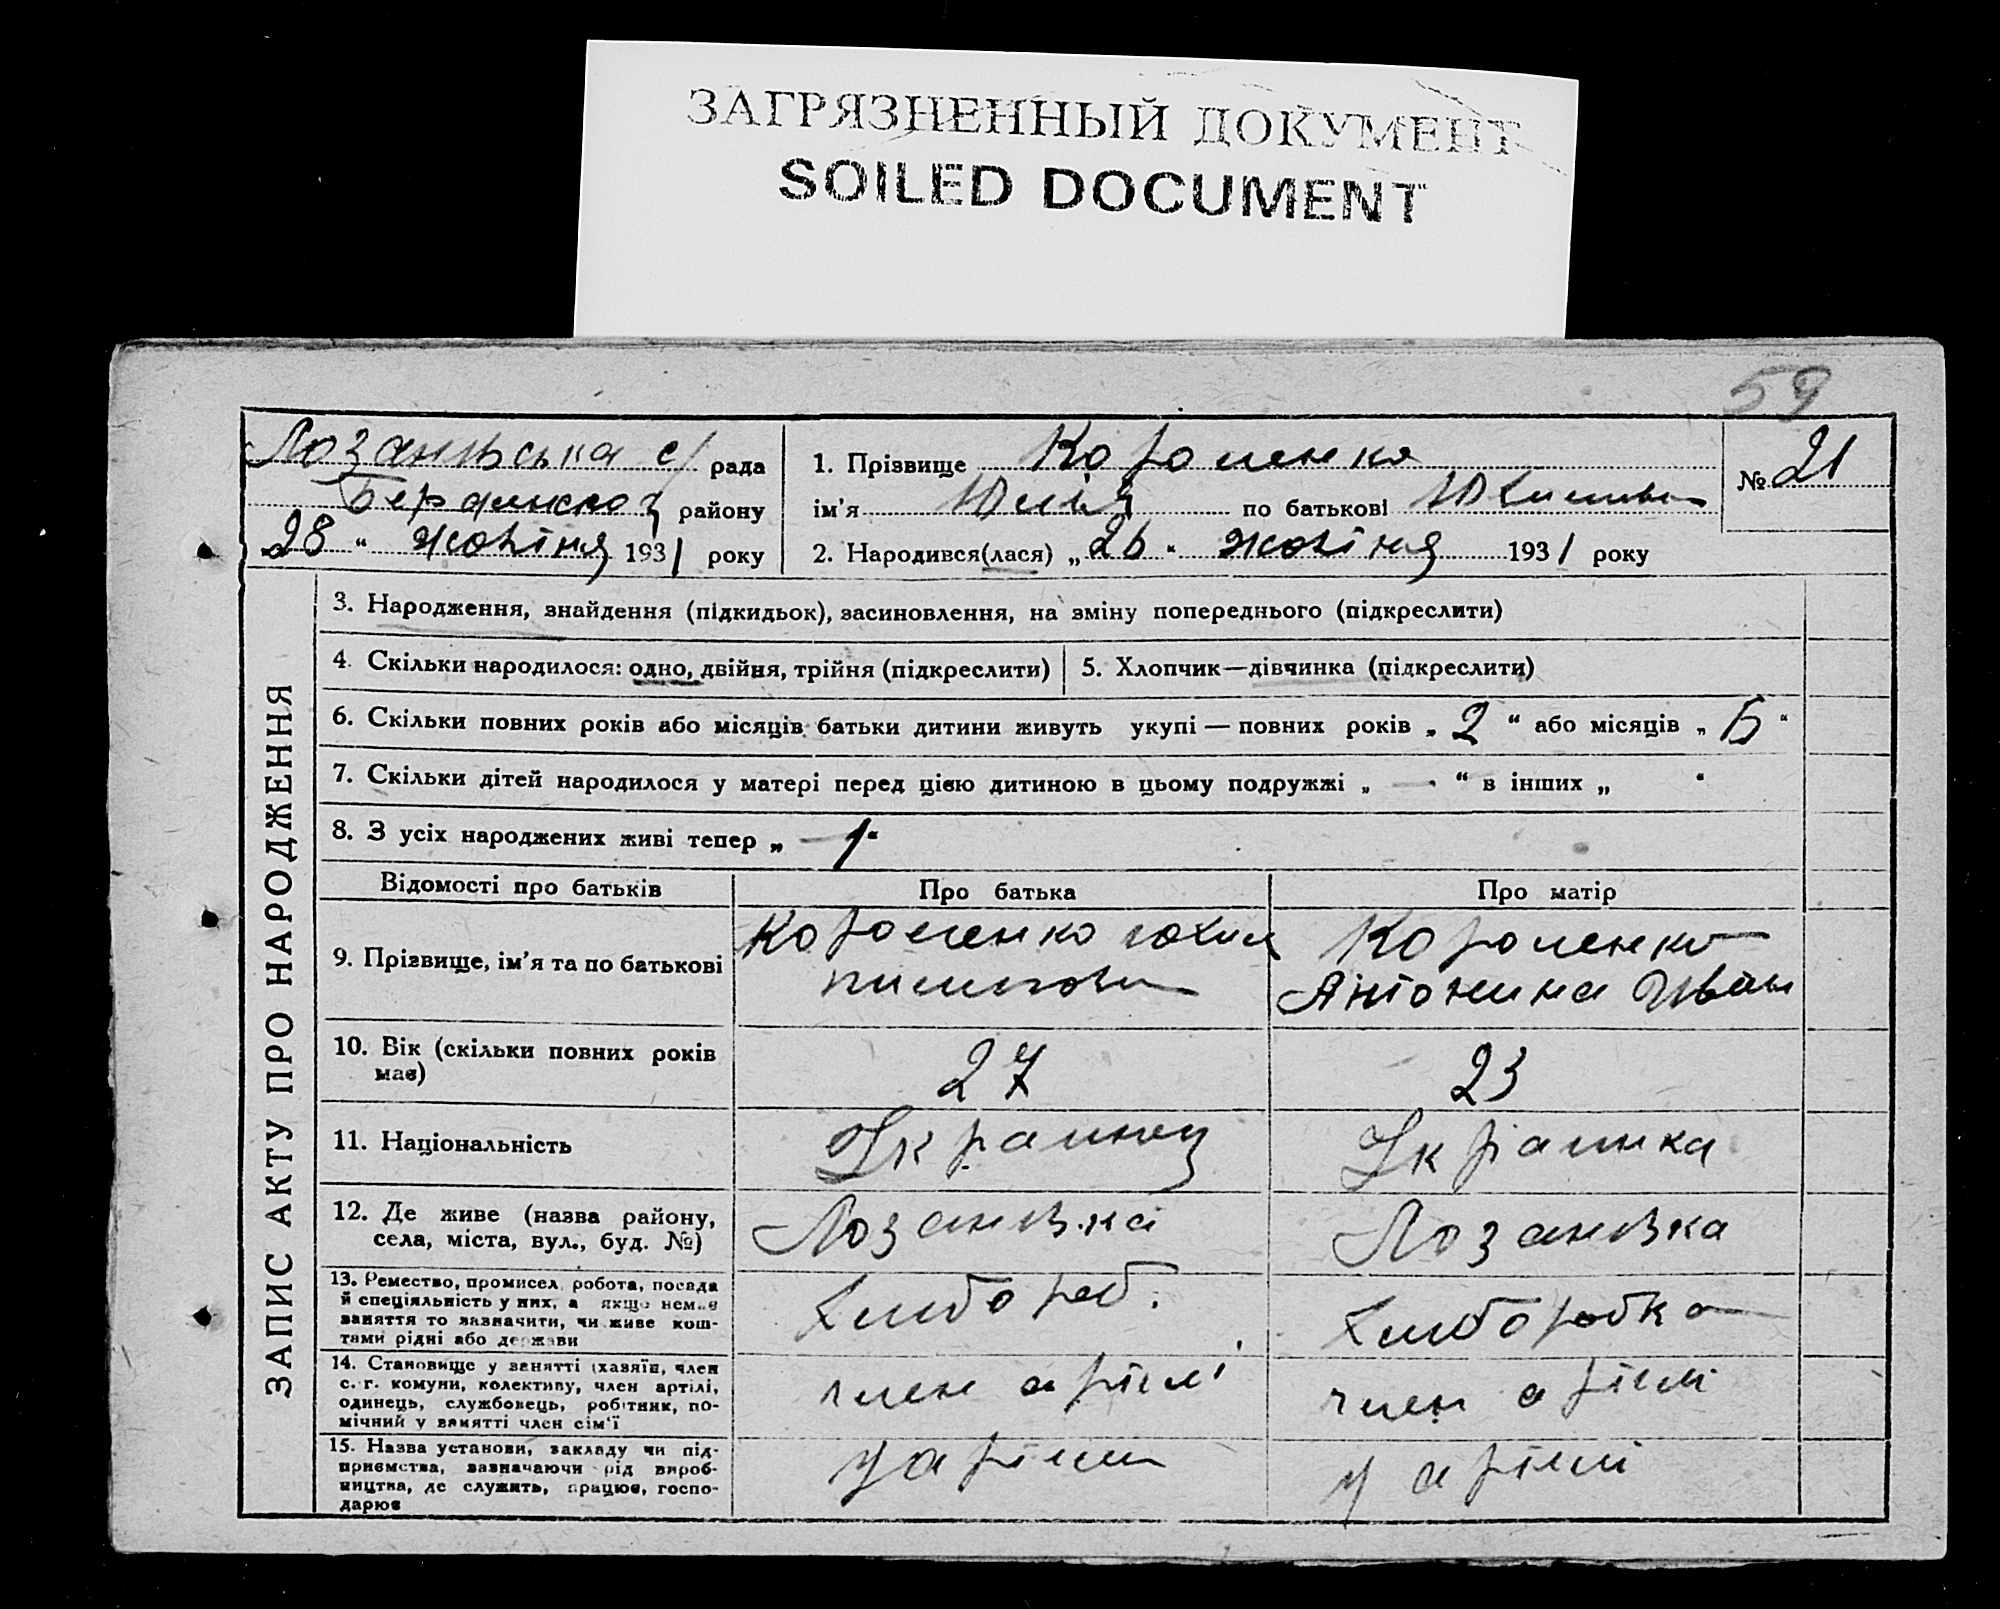 ЗАГРЯЗНЕННЫЙ ДОКУМЕНТ
SOILED DOCUMENT
59
Лозанівська с/ рада
району
28 " жовтня 1931 року
1. Прізвище Короленко
ім'я Юлія по батькові Юхимівна
№ 21
2. Народився(лася) „ 26 " жовтня 1931 року
ЗАПИС АКТУ ПРО НАРОДЖЕННЯ
3. Народження, знайдення (підкидьок), засиновлення, на зміну попереднього (підкреслити)
4. Скільки народилося: одно, двійня, трійня (підкреслити) 5. Хлопчик—дівчинка (підкреслити)
6. Скільки повних років або місяців батьки дитини живуть укупі — повних років „ 2 " або місяців „ "
7. Скільки дітей народилося у матері перед цією дитиною в цьому подружжі „ — " в інших „ "
8. З усіх народжених живі тепер „ 1 "
Відомості про батьків Про батька Про матір
9. Прізвище, ім'я та по батькові
Короленко юхим
пилипович
Короленко
Антонина Иван
10. Вік (скільки повних років має) 27 23
11. Національність Украинец Украинка
12. Де живе (назва району,
села, міста, вул., буд. №)
Лозанівка Лозанівка
13. Ремество, промисел, робота, посада
й спеціяльність у них, а якщо немає
заняття то зазначити, чи живе кош-
тами рідні або держави
Хлибороб. Хлиборобка
14. Становище у занятті (хазяїн, член
с.-г. комуни, колективу, член артілі,
одинець, службовець, робітник, по-
мічний у занятті член сім'ї
член артілі член артілі
15. Назва установи, закладу чи під-
приємства, зазначаючи рід вироб-
ництва, де служить, працює, госпо-
дарює
у артіли у артілі